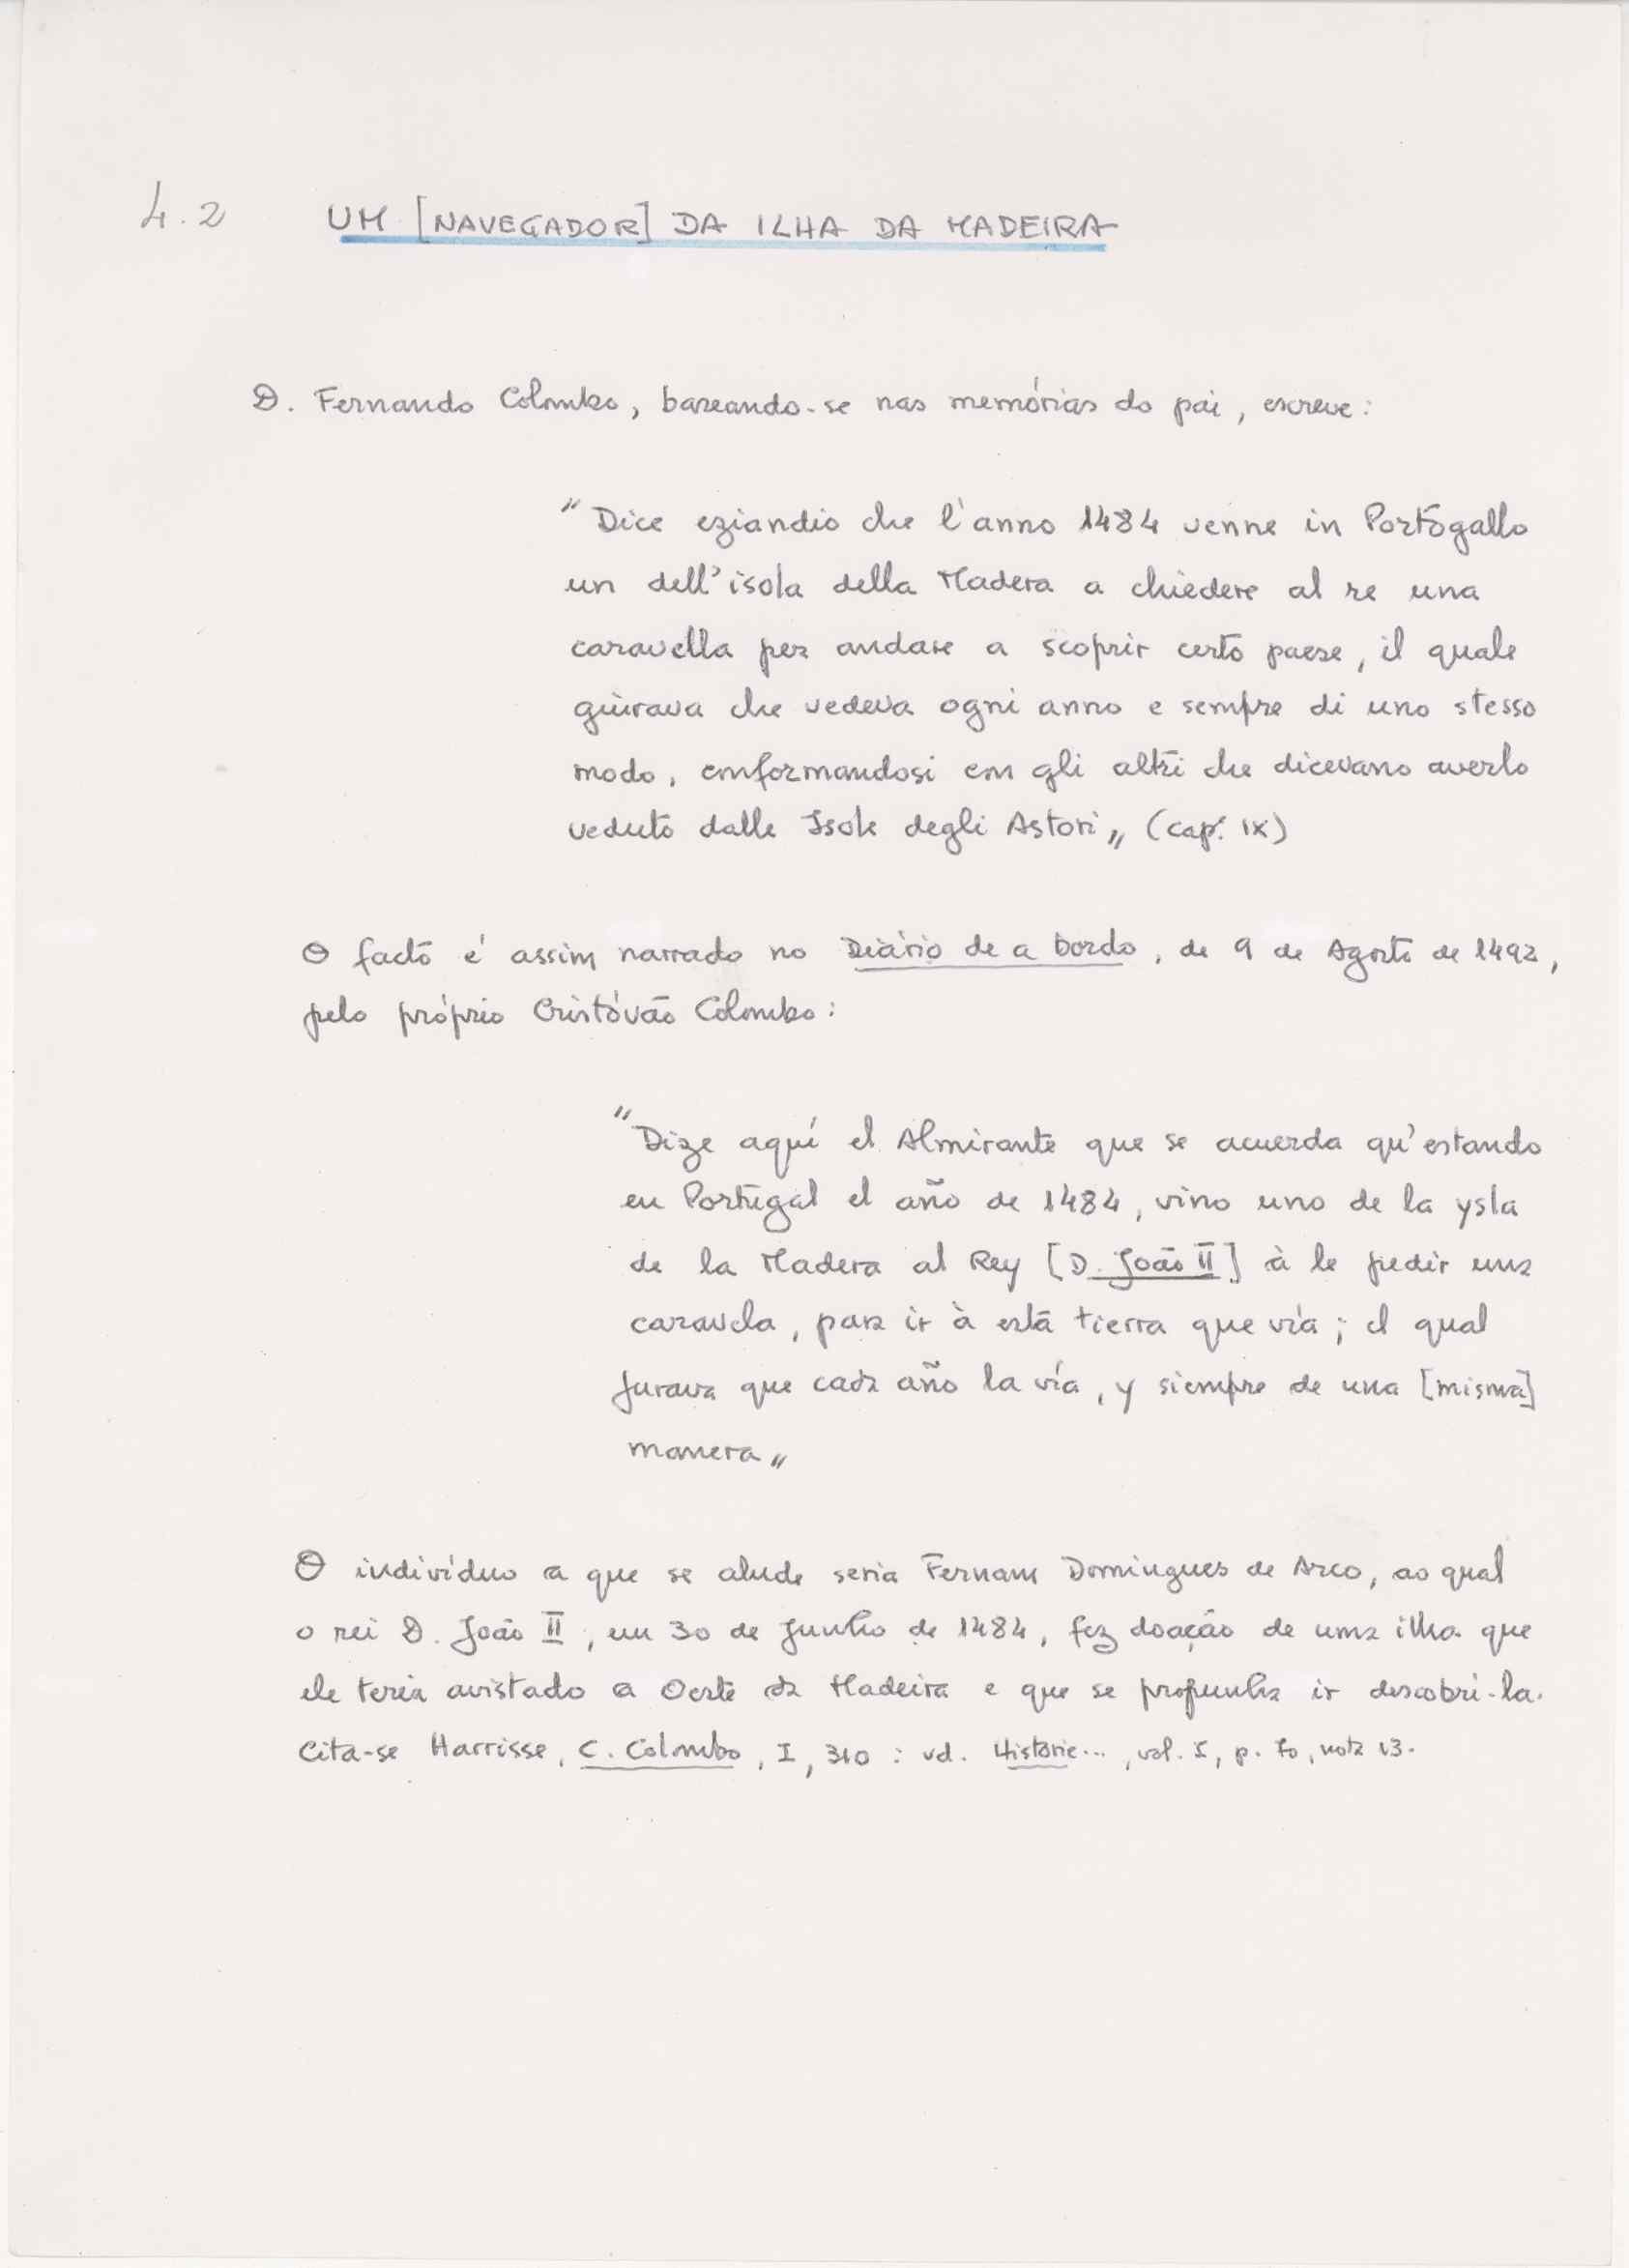 4.2 UM [NAVEGADOR] DA ILHA DA MADEIRA
D. Fernando Colombo, baseando-se nas memórias do pai, escreve:
"Dice eziandio che l'anno 1484 venne in Portogallo
un dell'isola della Madera a chiedere al re una
caravella per andare a scoprir certo paese, il quale
giurava che vedeva ogni anno e sempre di uno stesso
modo, conformandosi con gli altri che dicevano averlo
veduto dalle Isole degli Astori" (cap. IX)
O facto é assim narrado no Diário de a bordo, de 9 de Agosto de 1492,
pelo próprio Cristóvão Colombo:
"Dize aquí el Almirante que se acuerda qu'estando
en Portugal el año de 1484, vino uno de la ysla
de la Madera al Rey [D. João II] à le pedir una
caravela, para ir à esta tierra que vía; el qual
jurava que cada año la vía, y siempre de una [misma]
manera"
O indivíduo a que se alude seria Fernam Domingues de Arco, ao qual
o rei D. João II, em 30 de Junho de 1484, fez doação de uma ilha que
ele teria avistado a Oeste da Madeira e que se propunha ir descobri-la.
Cita-se Harrisse, C. Colombo, I, 310 : vd. Historie..., vol. I, p. 70, nota 13.